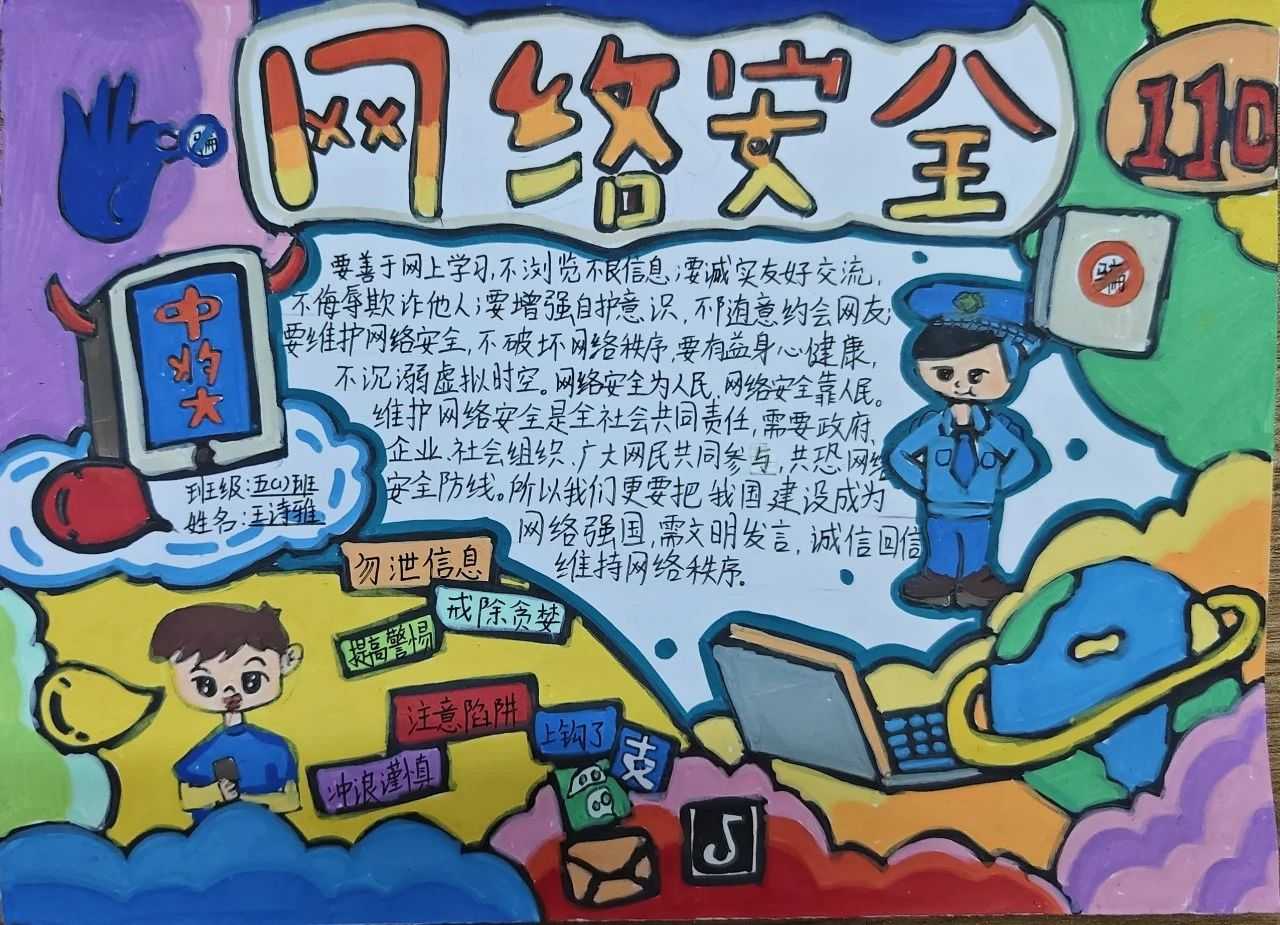 网络安全
110
骗
骗
中奖大
要善于网上学习,不浏览不良信息;要诚实友好交流,
不侮辱欺诈他人;要增强自护意识,不随意约会网友;
要维护网络安全,不破坏网络秩序,要有益身心健康,
不沉溺虚拟时空。网络安全为人民,网络安全靠人民。
维护网络安全是全社会共同责任,需要政府、
企业、社会组织、广大网民共同参与,共恐网络
安全防线。所以我们更要把我国建设成为
网络强国,需文明发言,诚信回信
维持网络秩序.
班级:五(1)班
姓名:王诗雅
勿泄信息
戒除贪婪
提高警惕
注意陷阱
上钩了
冲浪谨慎
支